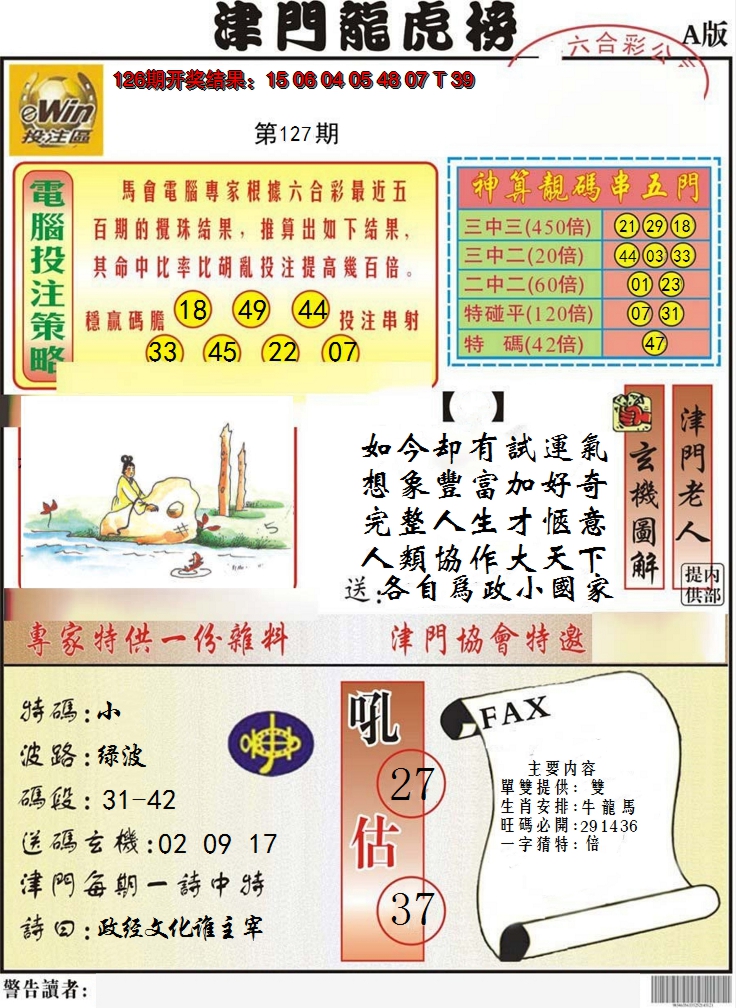 津門龍虎榜
A版
六合彩公
126期开奖结果：15 06 04 05 48 07 T 39
eWin
投注區
第127期
電腦投注策略
馬會電腦專家根據六合彩最近五
百期的攪珠结果，推算出如下结果，
其命中比率比胡亂投注提高幾百倍。
穩贏碼膽 18 49 44 投注串射
33 45 22 07
神算靚碼串五門
三中三(450倍) 21 29 18
三中二(20倍) 44 03 33
二中二(60倍) 01 23
特碰平(120倍) 07 31
特 碼(42倍) 47
【 】
如今却有試運氣
想象豐富加好奇
完整人生才惬意
人類協作大天下
送:各自爲政小國家
玄機圖解
津門老人
内部提供
專家特供一份雜料
津門協會特邀
特碼:小
波路:绿波
碼段:31-42
送碼玄機:02 09 17
津門每期一詩中特
詩曰:政经文化谁主宰
吼
27
估
37
FAX
主要内容
單雙提供: 雙
生肖安排:牛龍馬
旺碼必開:291436
一字猜特: 倍
警告讀者: